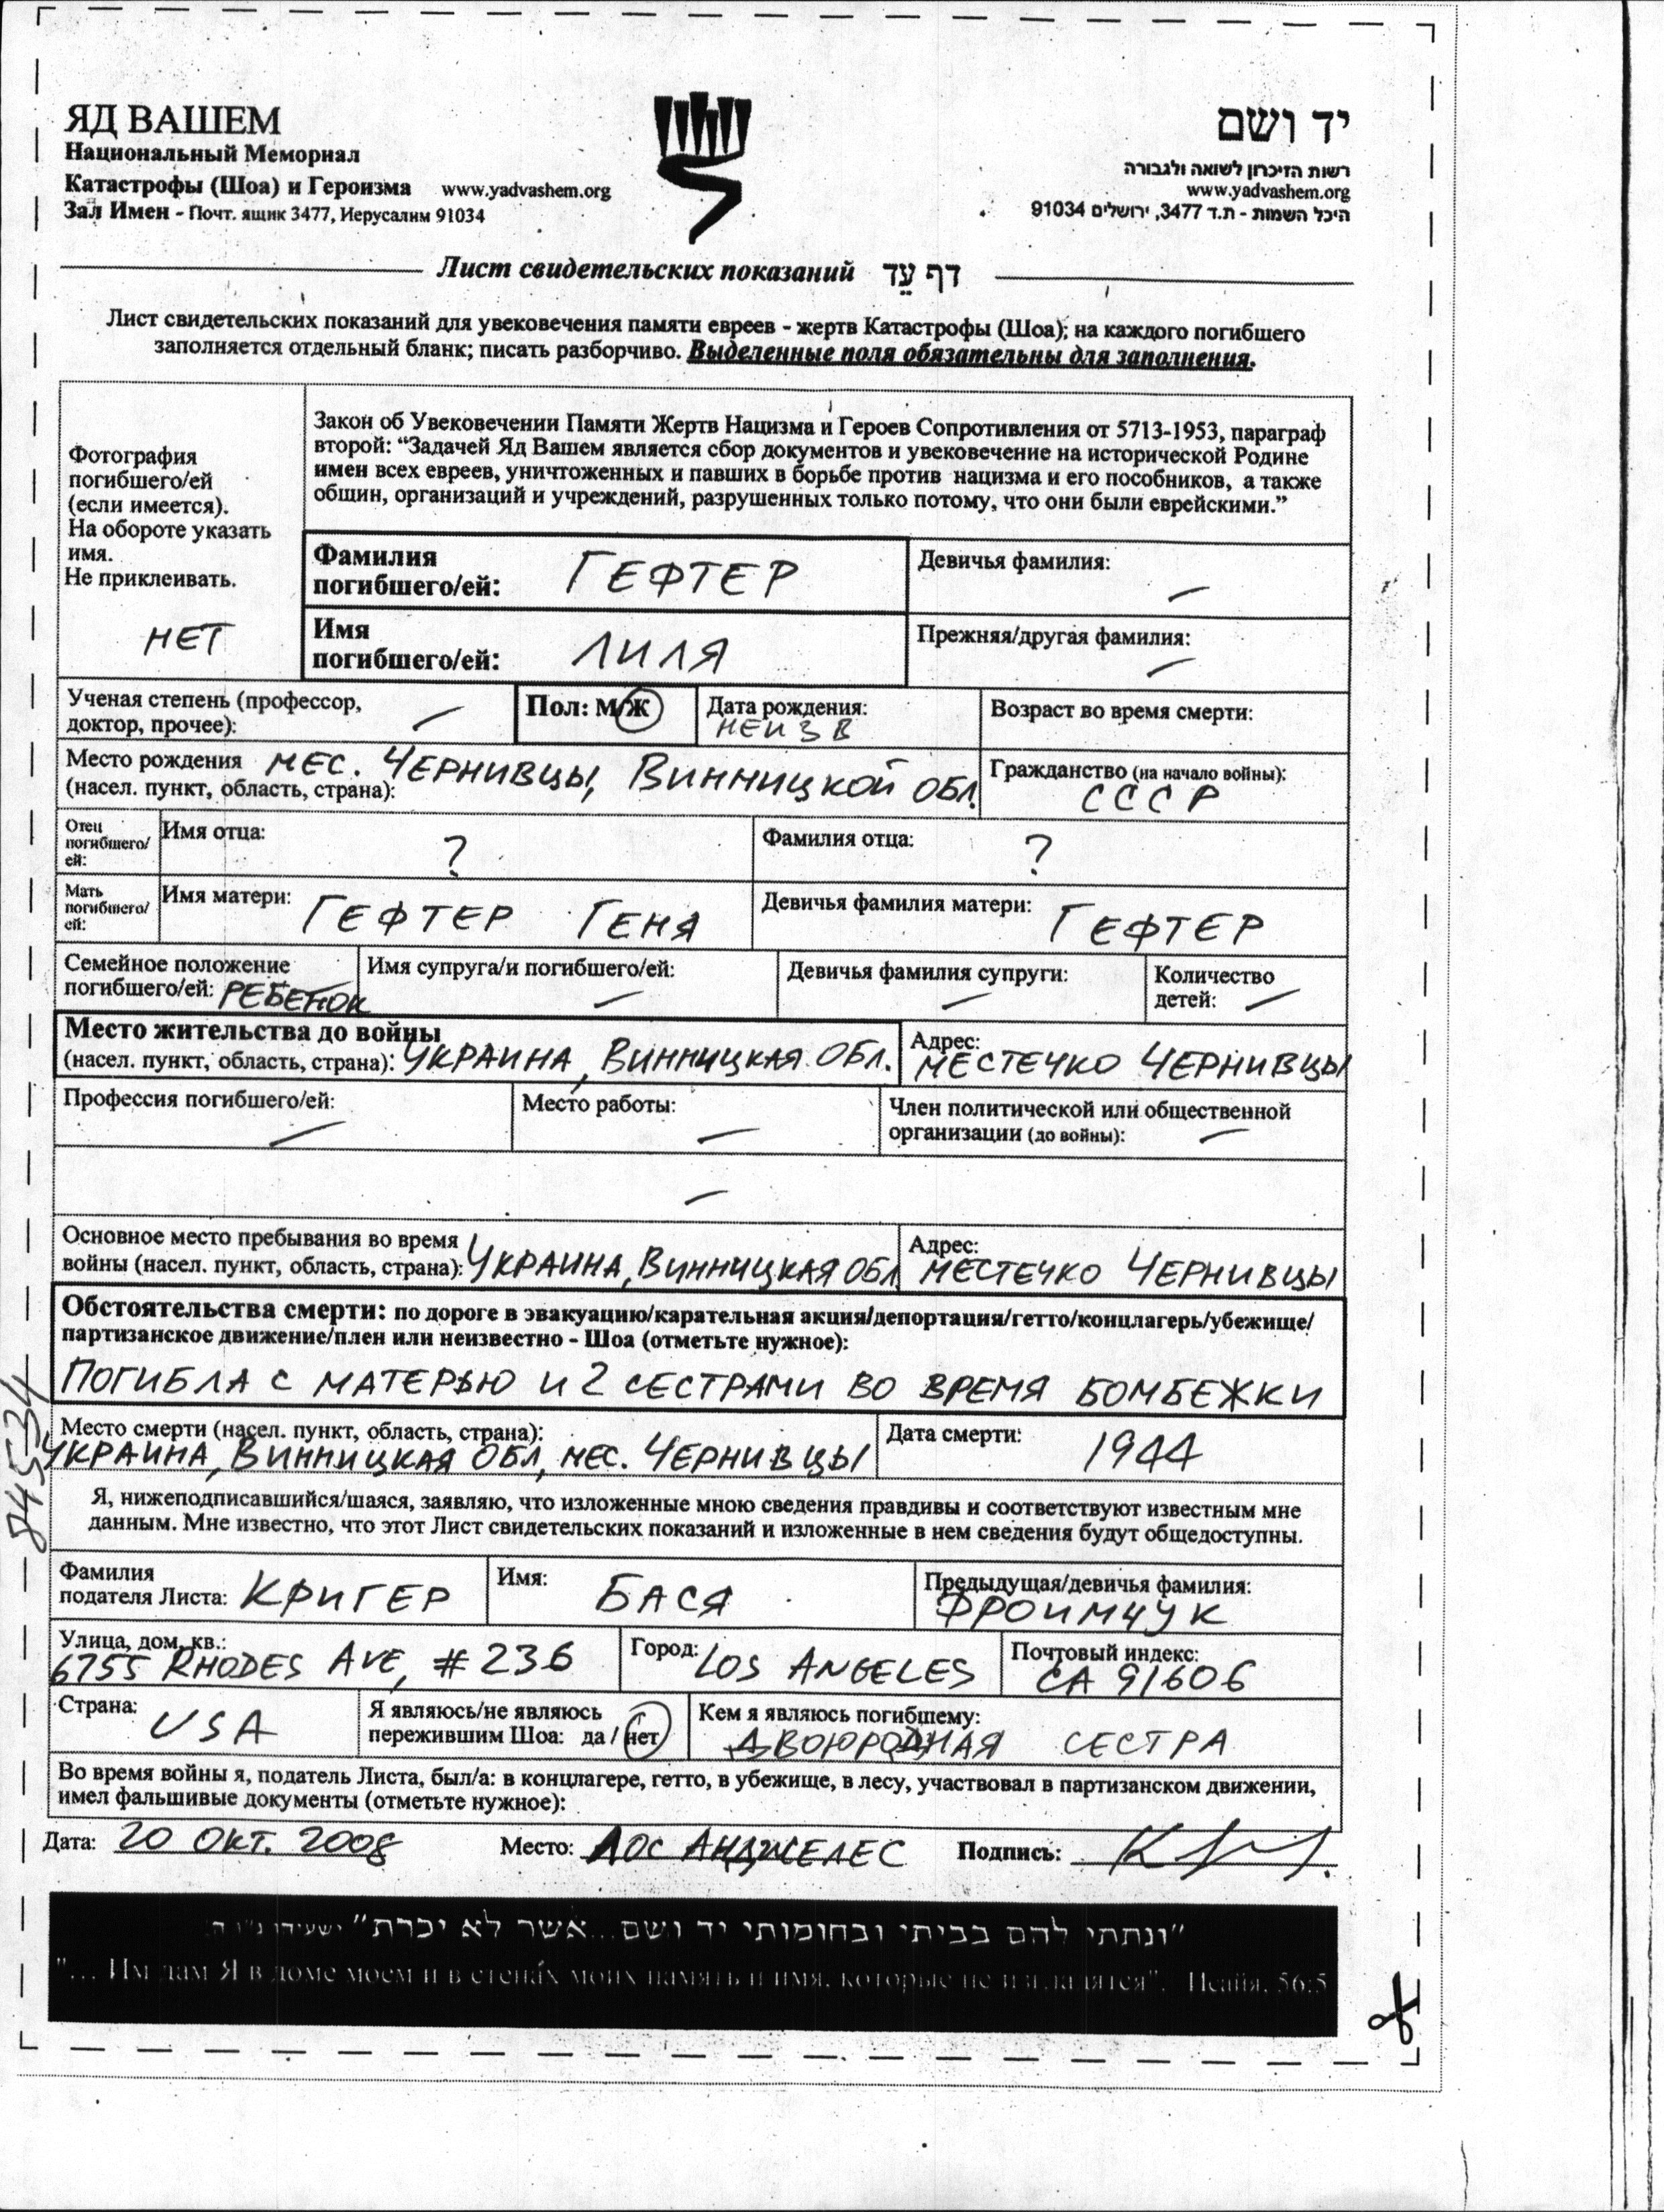 ЯД ВАШЕМ
Национальный Мемориал
Катастрофы (Шоа) и Героизма www.yadvashem.org
Зал Имен - Почт. ящик 3477, Иерусалим 91034
יד ושם
רשות הזיכרון לשואה ולגבורה
www.yadvashem.org
היכל השמות - ת.ד 3477, ירושלים 91034
Лист свидетельских показаний דף עֵד
Лист свидетельских показаний для увековечения памяти евреев - жертв Катастрофы (Шоа); на каждого погибшего
заполняется отдельный бланк; писать разборчиво. Выделенные поля обязательны для заполнения.
Фотография
погибшего/ей
(если имеется).
На обороте указать
имя.
Не приклеивать.
НЕТ
Закон об Увековечении Памяти Жертв Нацизма и Героев Сопротивления от 5713-1953, параграф
второй: “Задачей Яд Вашем является сбор документов и увековечение на исторической Родине
имен всех евреев, уничтоженных и павших в борьбе против нацизма и его пособников, а также
общин, организаций и учреждений, разрушенных только потому, что они были еврейскими.”
Фамилия
погибшего/ей: ГЕФТЕР
Девичья фамилия: —
Имя
погибшего/ей: ЛИЛЯ
Прежняя/другая фамилия: —
Ученая степень (профессор,
доктор, прочее): —
Пол: М/Ж
Дата рождения:
НЕИЗВ
Возраст во время смерти:
Место рождения МЕС. ЧЕРНИВЦЫ, ВИННИЦКОЙ ОБЛ.
(насел. пункт, область, страна):
Гражданство (на начало войны):
СССР
Отец
погибшего/
ей:
Имя отца: ?
Фамилия отца: ?
Мать
погибшего/
ей:
Имя матери: ГЕФТЕР ГЕНЯ
Девичья фамилия матери: ГЕФТЕР
Семейное положение
погибшего/ей: РЕБЕНОК
Имя супруга/и погибшего/ей: —
Девичья фамилия супруги: —
Количество
детей: —
Место жительства до войны
(насел. пункт, область, страна): УКРАИНА, ВИННИЦКАЯ ОБЛ.
Адрес:
МЕСТЕЧКО ЧЕРНИВЦЫ
Профессия погибшего/ей: —
Место работы: —
Член политической или общественной
организации (до войны): —
—
Основное место пребывания во время
войны (насел. пункт, область, страна): УКРАИНА, ВИННИЦКАЯ ОБЛ
Адрес:
МЕСТЕЧКО ЧЕРНИВЦЫ
Обстоятельства смерти: по дороге в эвакуацию/карательная акция/депортация/гетто/концлагерь/убежище/
партизанское движение/плен или неизвестно - Шоа (отметьте нужное):
ПОГИБЛА С МАТЕРЬЮ И 2 СЕСТРАМИ ВО ВРЕМЯ БОМБЕЖКИ
Место смерти (насел. пункт, область, страна):
УКРАИНА, ВИННИЦКАЯ ОБЛ, МЕС. ЧЕРНИВЦЫ
Дата смерти: 1944
Я, нижеподписавшийся/шаяся, заявляю, что изложенные мною сведения правдивы и соответствуют известным мне
данным. Мне известно, что этот Лист свидетельских показаний и изложенные в нем сведения будут общедоступны.
Фамилия
подателя Листа: КРИГЕР
Имя: БАСЯ
Предыдущая/девичья фамилия:
ФРОИМЧУК
Улица, дом, кв.:
6755 RHODES AVE, # 236
Город: LOS ANGELES
Почтовый индекс:
CA 91606
Страна: USA
Я являюсь/не являюсь
пережившим Шоа: да / нет
Кем я являюсь погибшему:
ДВОЮРОДНАЯ СЕСТРА
Во время войны я, податель Листа, был/а: в концлагере, гетто, в убежище, в лесу, участвовал в партизанском движении,
имел фальшивые документы (отметьте нужное):
Дата: 20 ОКТ. 2008 Место: ЛОС АНДЖЕЛЕС Подпись:
"ונתתי להם בביתי ובחומותי יד ושם...אשר לא יכרת" ישעיהו נ"ו ה
"... Им дам Я в доме моем и в стенах моих память и имя, которые не изгладятся". Исайя, 56:5